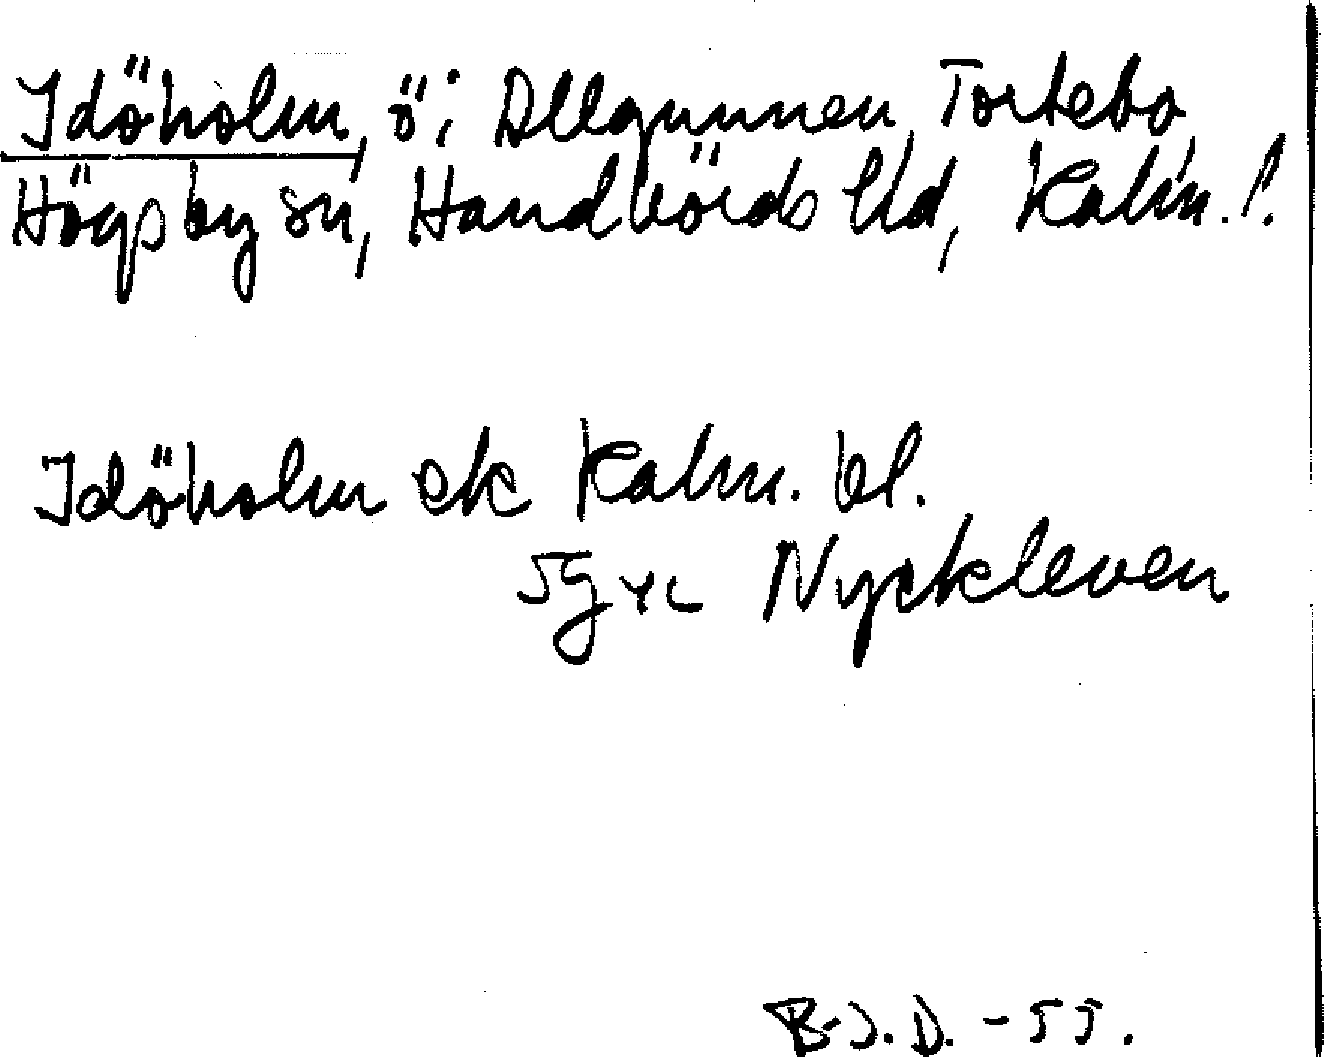 Idöholm, ö i Allgunnen, Tortebo,
Högsby sn, Handbörds hd, Kalm. l.
Idöholm ek Kalm. bl.
5g Nyckleven
B-J.D. - 55.